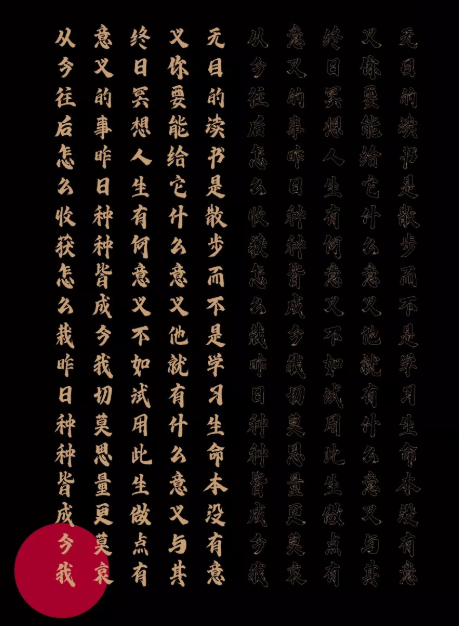 无目的读书是散步而不是学习生命本没有意
义你要能给它什么意义他就有什么意义与其
终日冥想人生有何意义不如试用此生做点有
意义的事昨日种种皆成今我切莫思量更莫哀
从今往后怎么收获怎么栽昨日种种皆成今我
无目的读书是散步而不是学习生命本没有意
义你要能给它什么意义他就有什么意义与其
终日冥想人生有何意义不如试用此生做点有
意义的事昨日种种皆成今我切莫思量更莫哀
从今往后怎么收获怎么栽昨日种种皆成今我